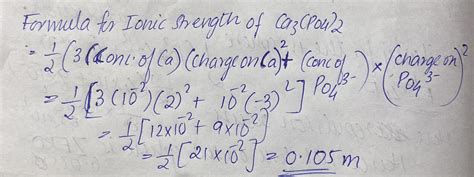 Formula for Ionic strength of Ca3(PO4)2
= 1/2 (3(Conc. of Ca)(charge on Ca)²+ (conc of PO4³⁻) × (charge on PO4³⁻)²
= 1/2 [3(10⁻²)(2)² + 10⁻²(-3)²]
= 1/2 [12×10⁻² + 9×10⁻²]
= 1/2 [21×10⁻²] = 0.105m